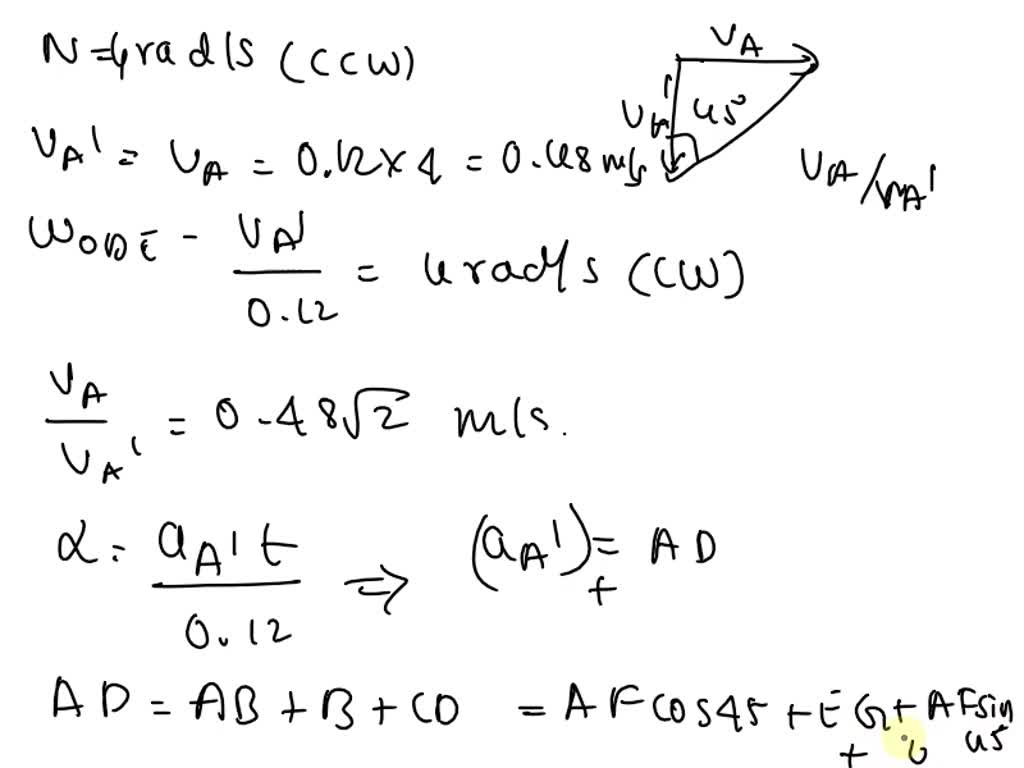 N = 4 rad/s (CCW)
VA
VA'
45°
VA/VA'
VA' = VA = 0.12 × 4 = 0.48 m/s
WODE - VA' / 0.12 = 4 rad/s (CW)
VA / VA' = 0.48√2 m/s.
α = aA't / 0.12 ⇒ (aA')t = AD
AD = AB + B + CD = AF cos45 + EG + AF sin 45
+ 0